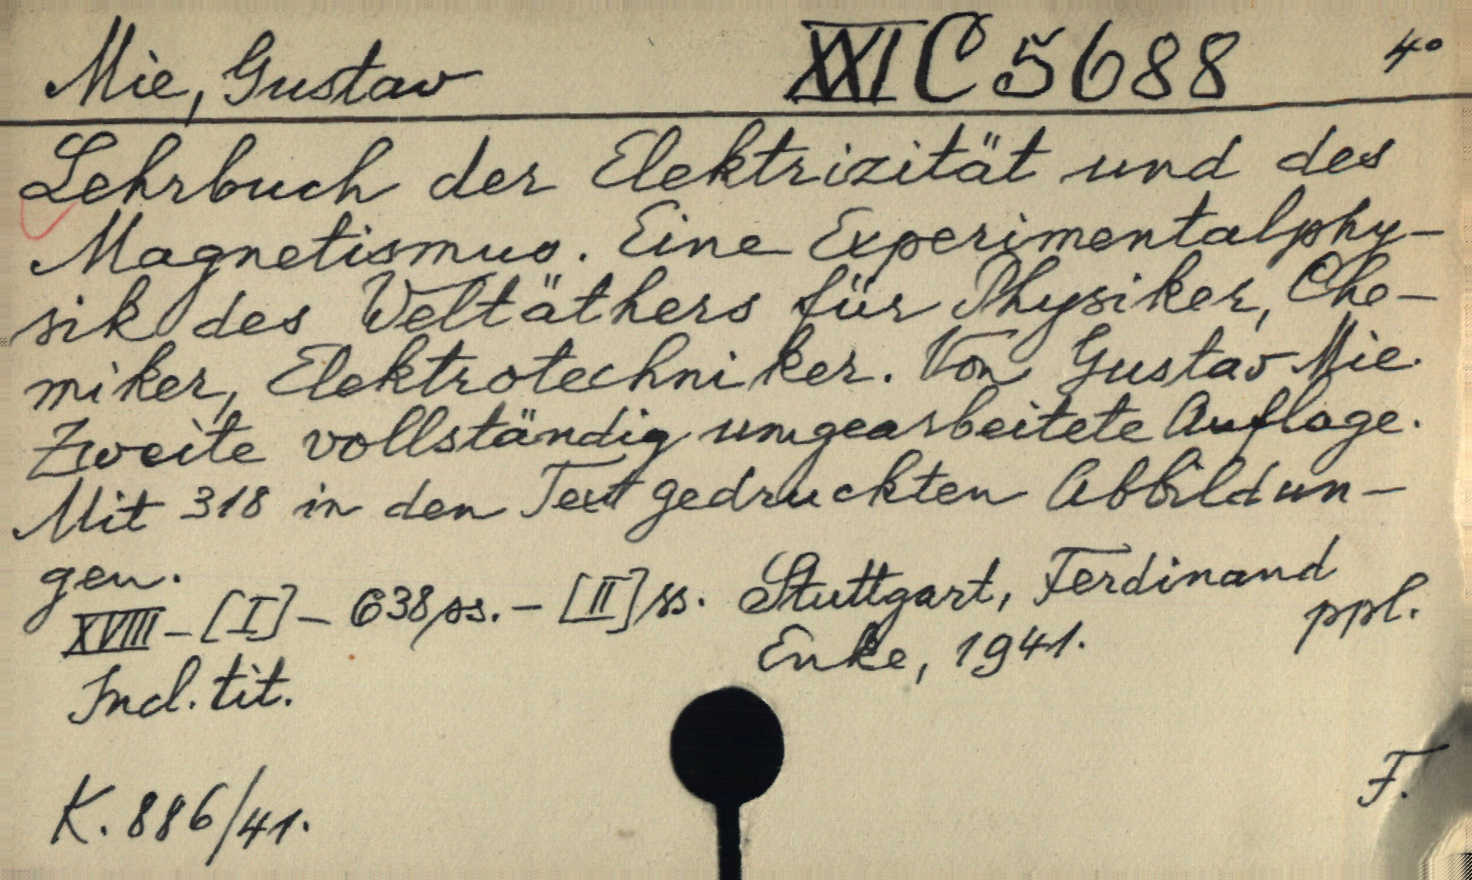 Mie, Gustav XXI C 5688 4°
Lehrbuch der Elektrizität und des
Magnetismus. Eine Experimentalphy-
sik des Weltäthers für Physiker, Che-
miker, Elektrotechniker. Von Gustav Mie.
Zweite vollständig umgearbeitete Auflage.
Mit 318 in den Text gedruckten Abbildun-
gen.
XVIII - [I] - 638 ss. - [II] ss. Stuttgart, Ferdinand
Enke, 1941. ppl.
Incl. tit.
K. 886/41. F.